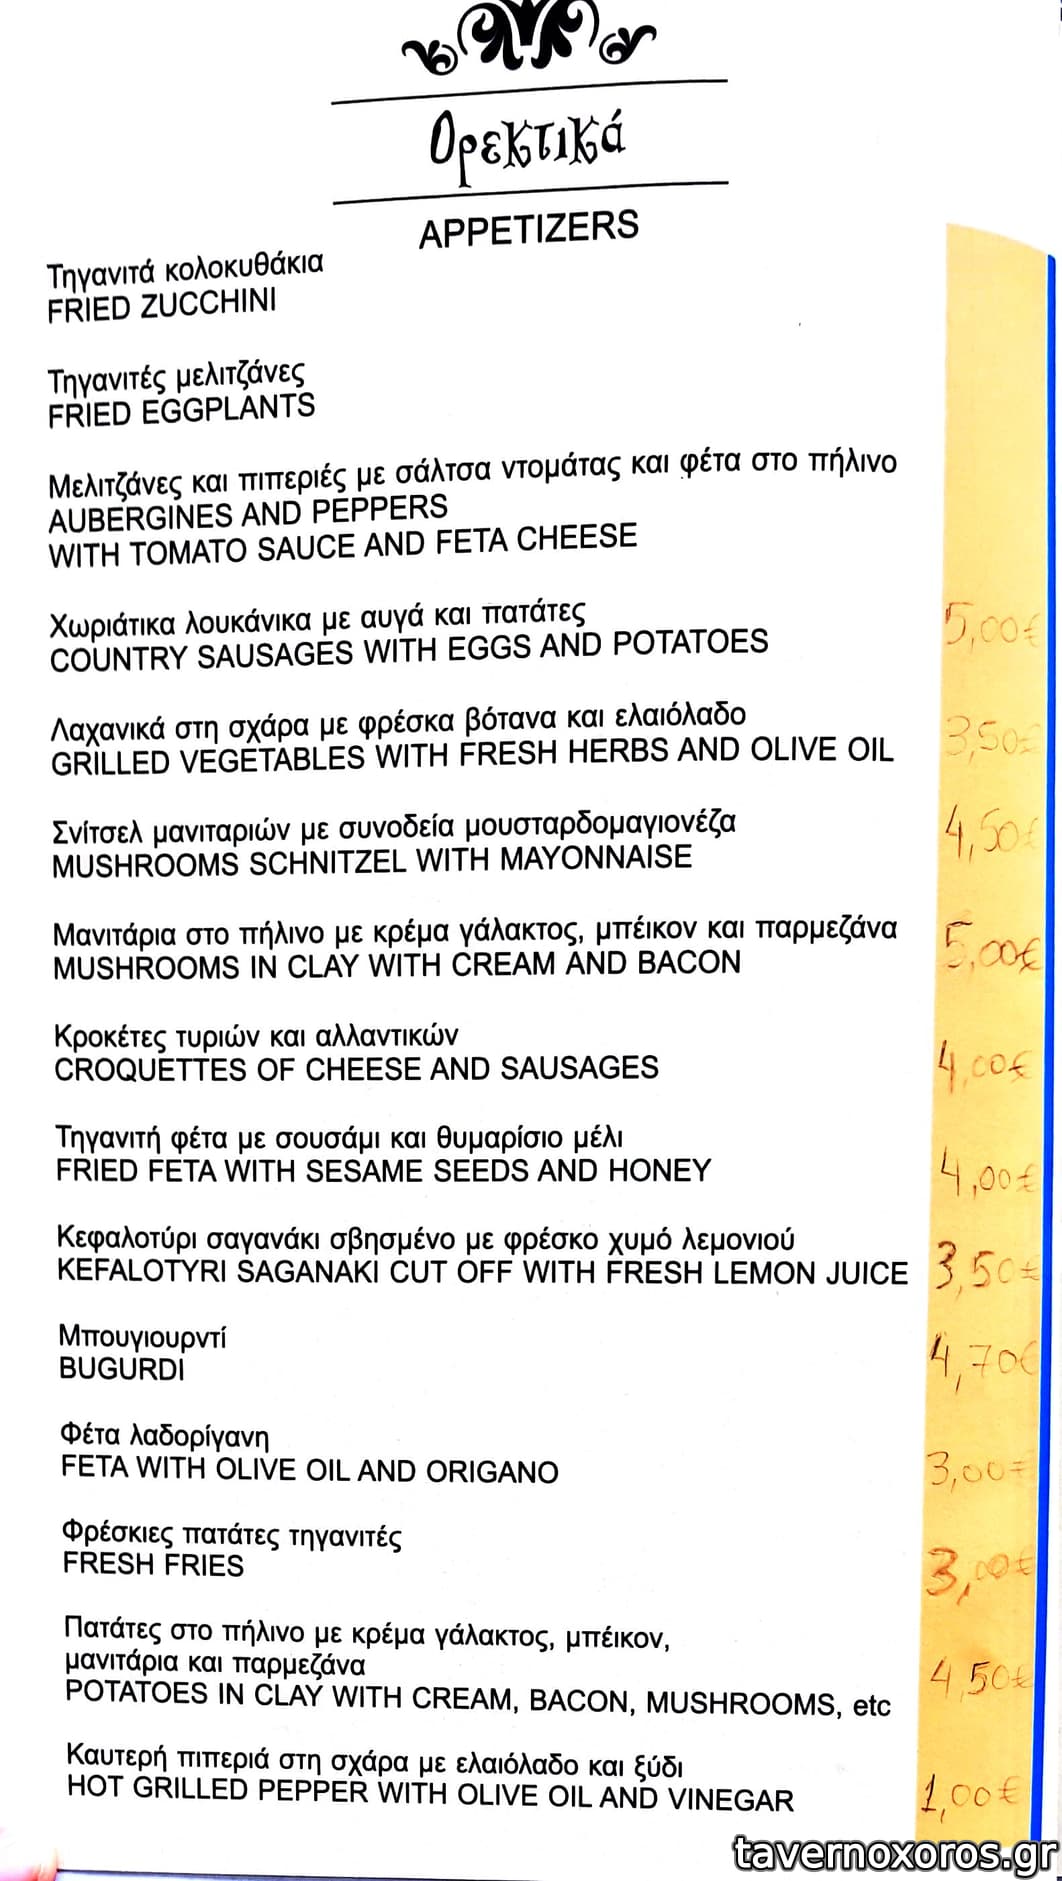 Ορεκτικά
APPETIZERS
Τηγανιτά κολοκυθάκια
FRIED ZUCCHINI
Τηγανιτές μελιτζάνες
FRIED EGGPLANTS
Μελιτζάνες και πιπεριές με σάλτσα ντομάτας και φέτα στο πήλινο
AUBERGINES AND PEPPERS
WITH TOMATO SAUCE AND FETA CHEESE
Χωριάτικα λουκάνικα με αυγά και πατάτες
COUNTRY SAUSAGES WITH EGGS AND POTATOES 5,00€
Λαχανικά στη σχάρα με φρέσκα βότανα και ελαιόλαδο
GRILLED VEGETABLES WITH FRESH HERBS AND OLIVE OIL 3,50€
Σνίτσελ μανιταριών με συνοδεία μουσταρδομαγιονέζα
MUSHROOMS SCHNITZEL WITH MAYONNAISE 4,50€
Μανιτάρια στο πήλινο με κρέμα γάλακτος, μπέικον και παρμεζάνα
MUSHROOMS IN CLAY WITH CREAM AND BACON 5,00€
Κροκέτες τυριών και αλλαντικών
CROQUETTES OF CHEESE AND SAUSAGES 4,00€
Τηγανιτή φέτα με σουσάμι και θυμαρίσιο μέλι
FRIED FETA WITH SESAME SEEDS AND HONEY 4,00€
Κεφαλοτύρι σαγανάκι σβησμένο με φρέσκο χυμό λεμονιού
KEFALOTYRI SAGANAKI CUT OFF WITH FRESH LEMON JUICE 3,50€
Μπουγιουρντί
BUGURDI 4,70€
Φέτα λαδορίγανη
FETA WITH OLIVE OIL AND ORIGANO 3,00€
Φρέσκιες πατάτες τηγανιτές
FRESH FRIES 3,00€
Πατάτες στο πήλινο με κρέμα γάλακτος, μπέικον,
μανιτάρια και παρμεζάνα
POTATOES IN CLAY WITH CREAM, BACON, MUSHROOMS, etc 4,50€
Καυτερή πιπεριά στη σχάρα με ελαιόλαδο και ξύδι
HOT GRILLED PEPPER WITH OLIVE OIL AND VINEGAR 1,00€
tavernoxoros.gr